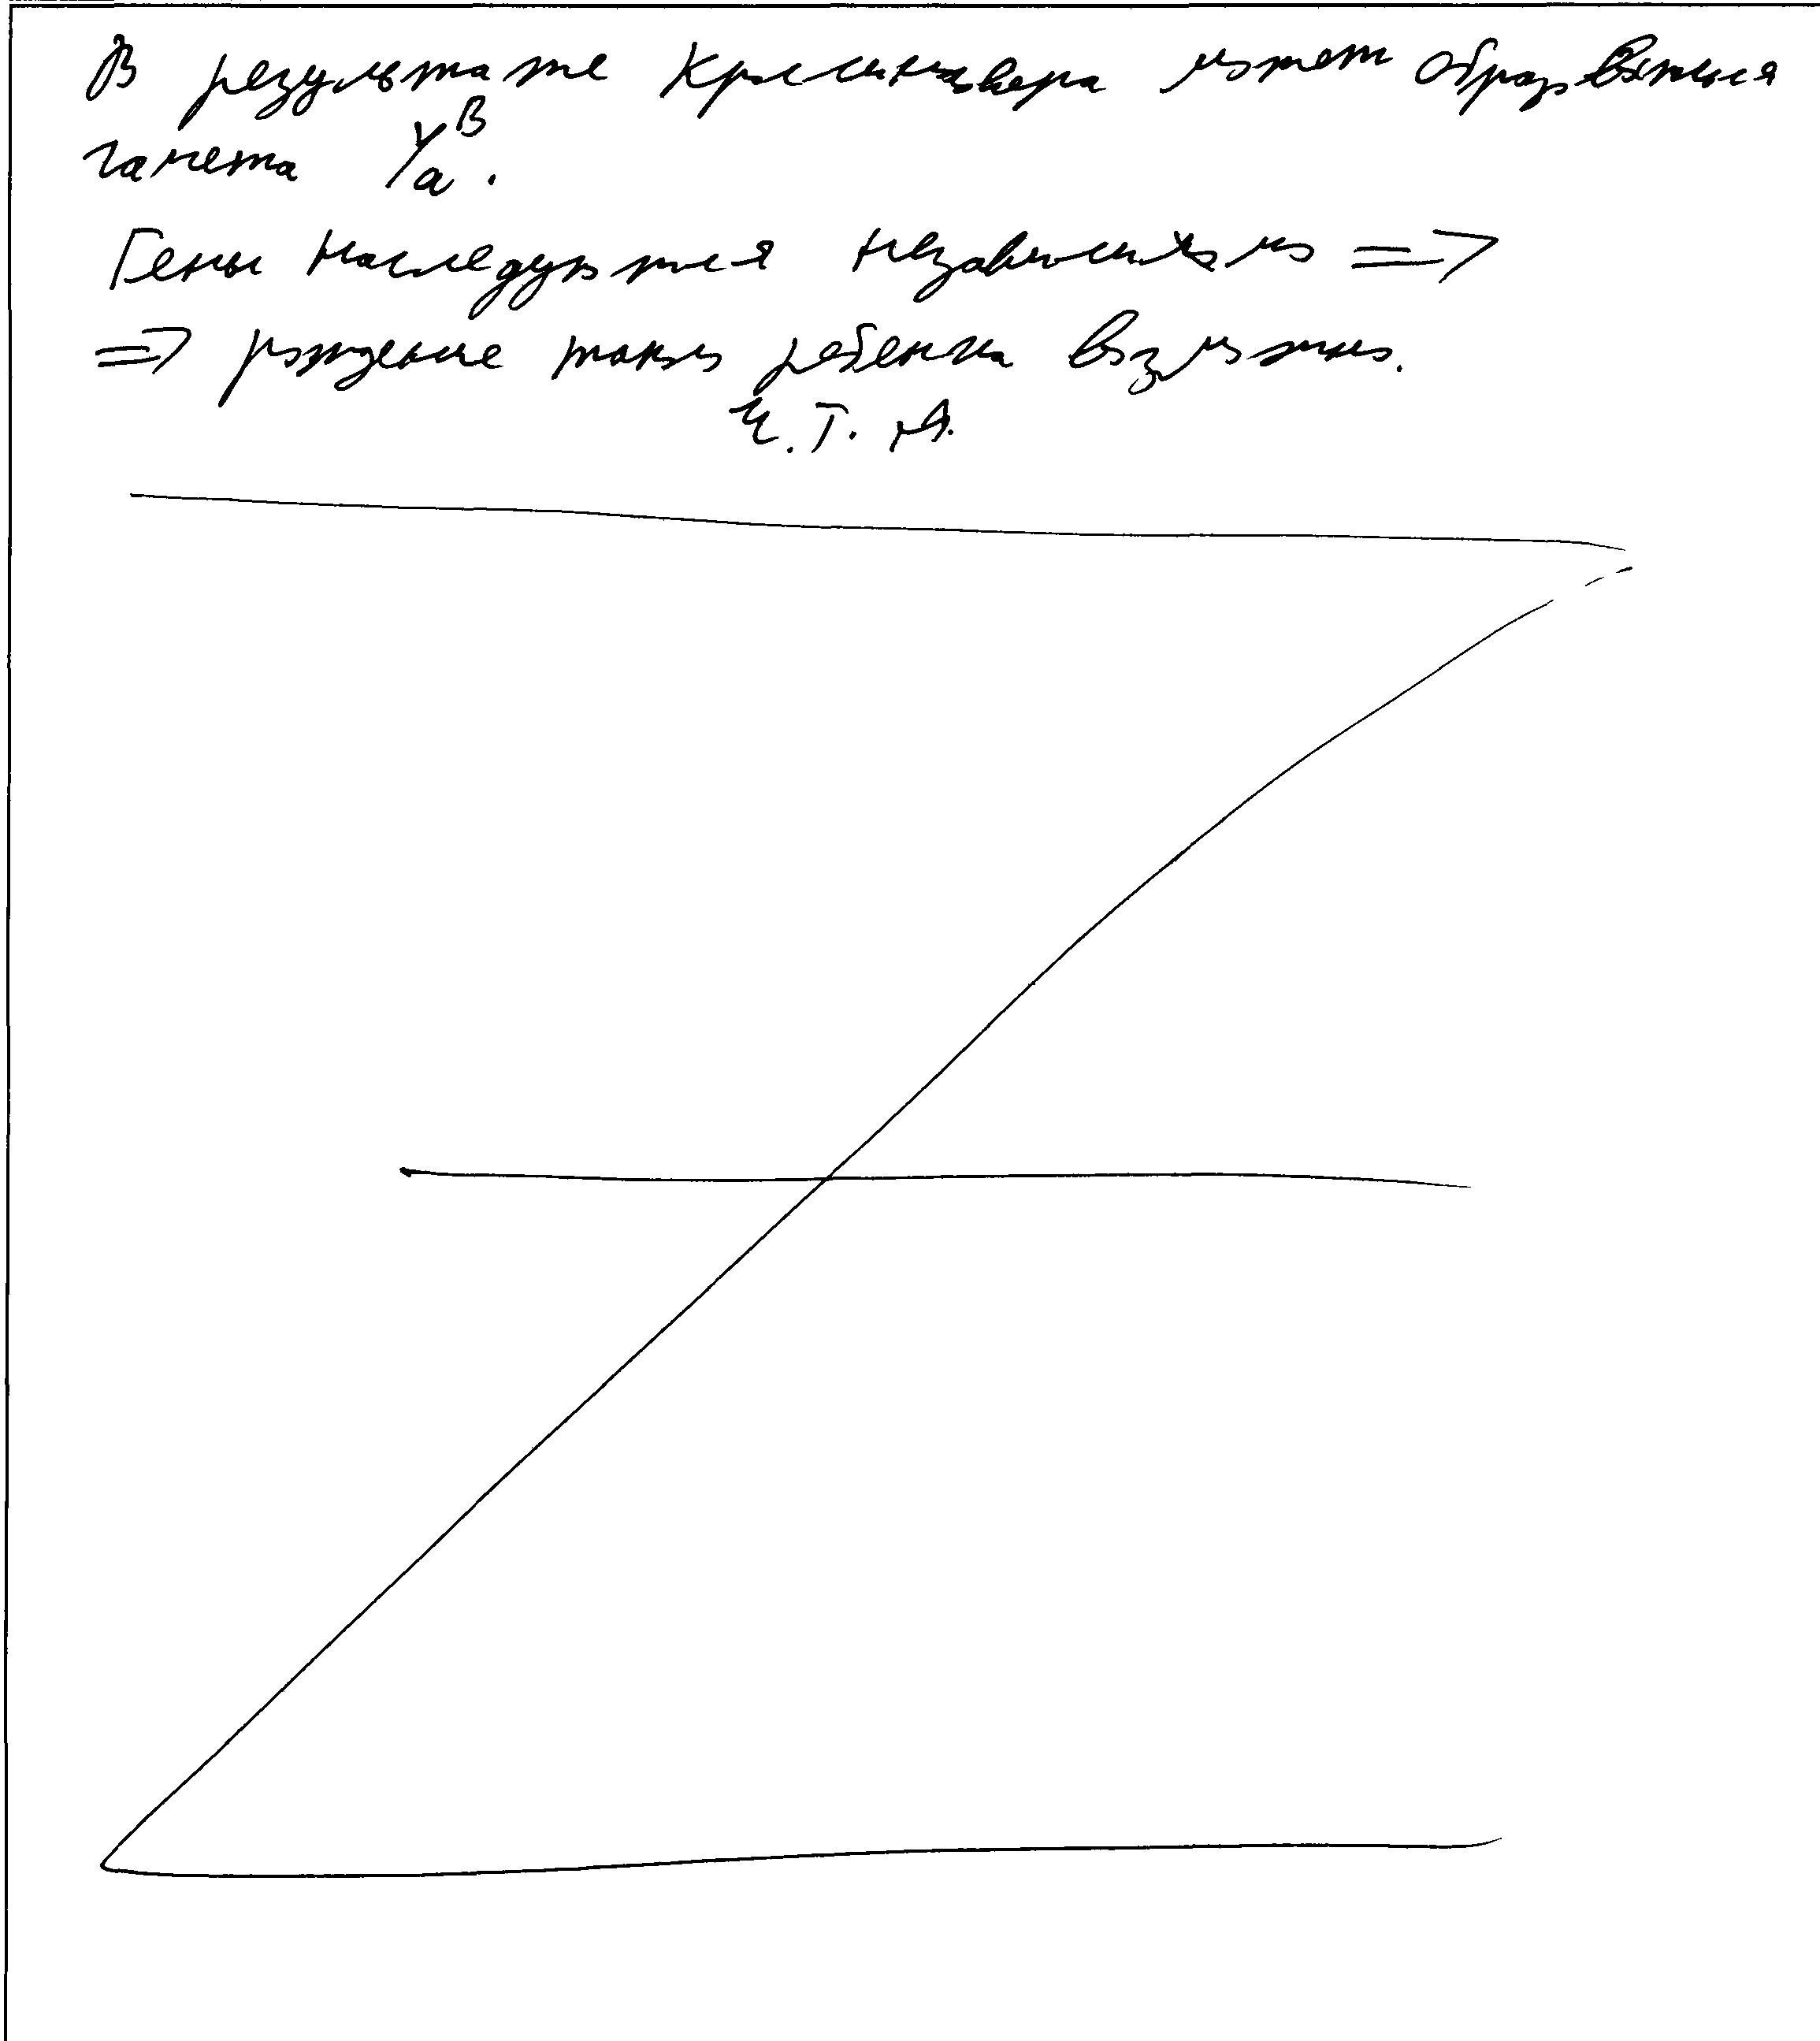 В результате кроссинговера может образоваться
гамета Yₐᴮ.
Гены наследуются независимо =>
=> рождение такого ребенка возможно.
Ч.Т.Д.